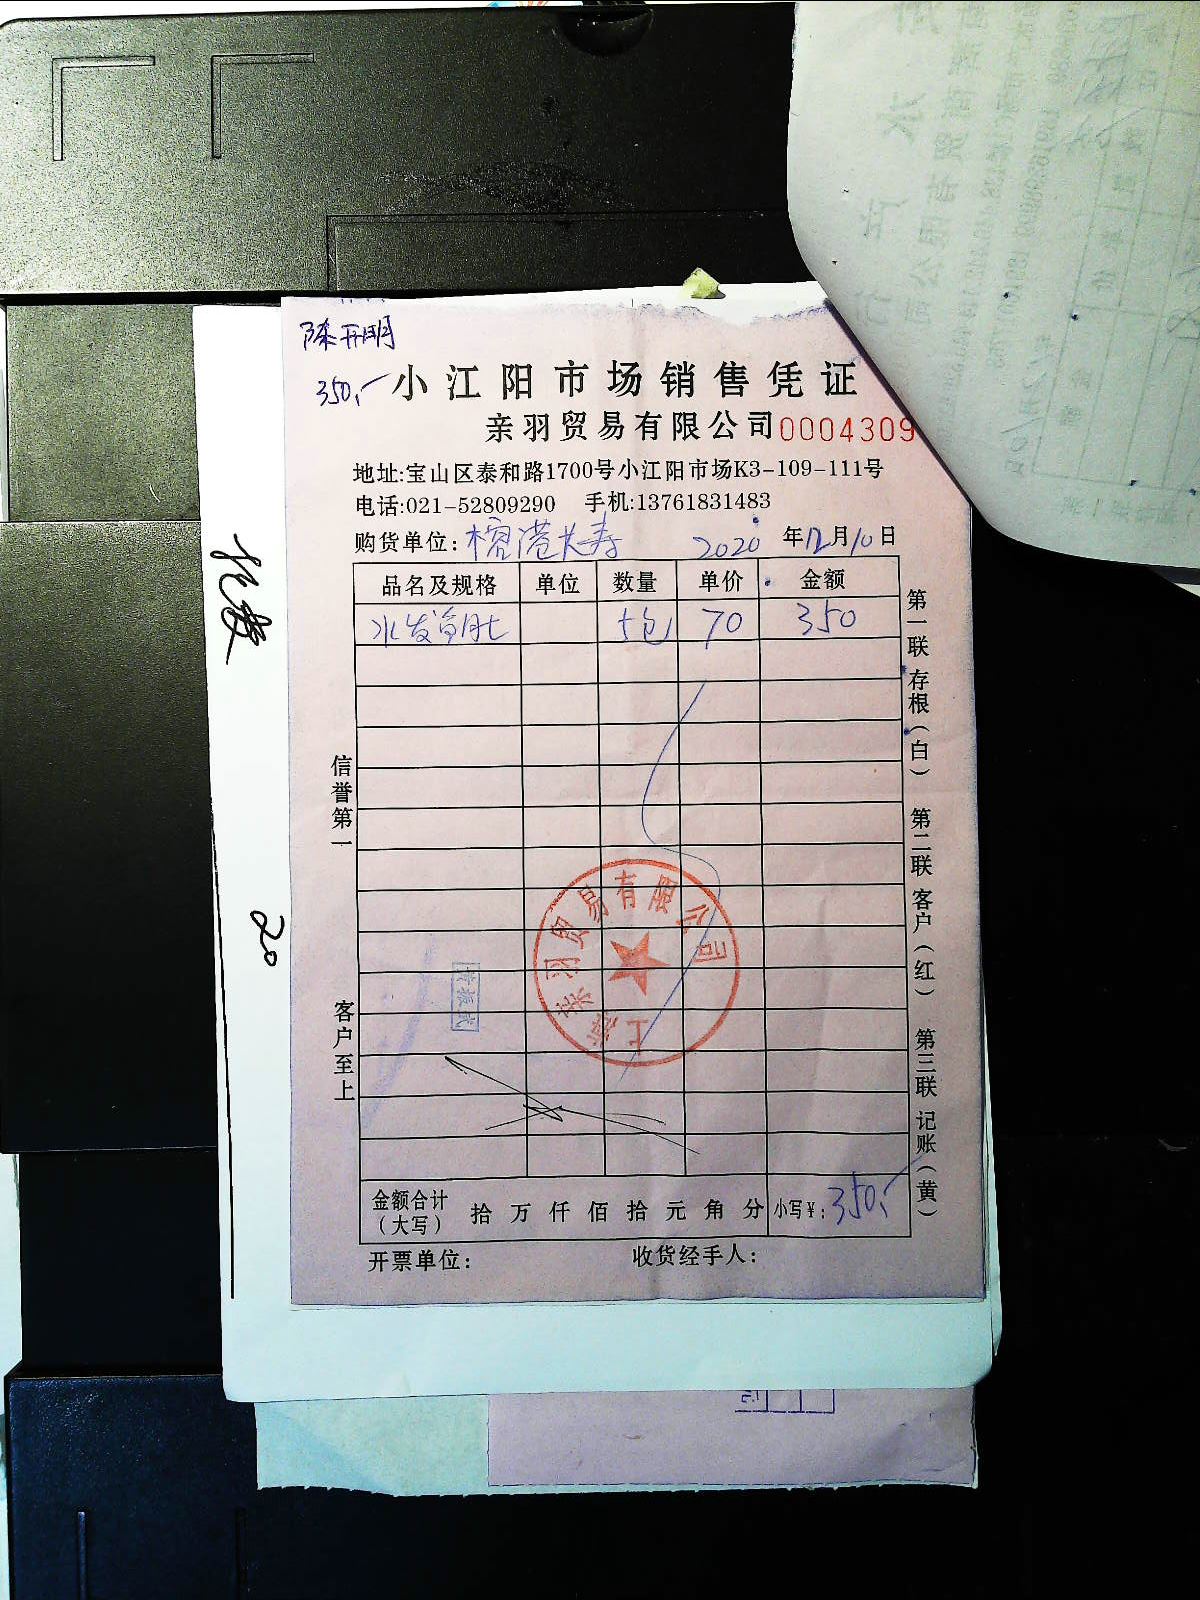 陈开明
350,-
小江阳市场销售凭证
亲羽贸易有限公司 0004309
地址:宝山区泰和路1700号小江阳市场K3-109-111号
电话:021-52809290 手机:13761831483
购货单位: 榕港长寿 2020 年 12 月 10 日
品名及规格 单位 数量 单价 金额
水发鱼肚 5包 70 350
信誉第一
客户至上
第一联 存根(白) 第二联 客户(红) 第三联 记账(黄)
上海亲羽贸易有限公司
20
金额合计(大写) 拾 万 仟 佰 拾 元 角 分 小写¥: 350,-
开票单位: 收货经手人: